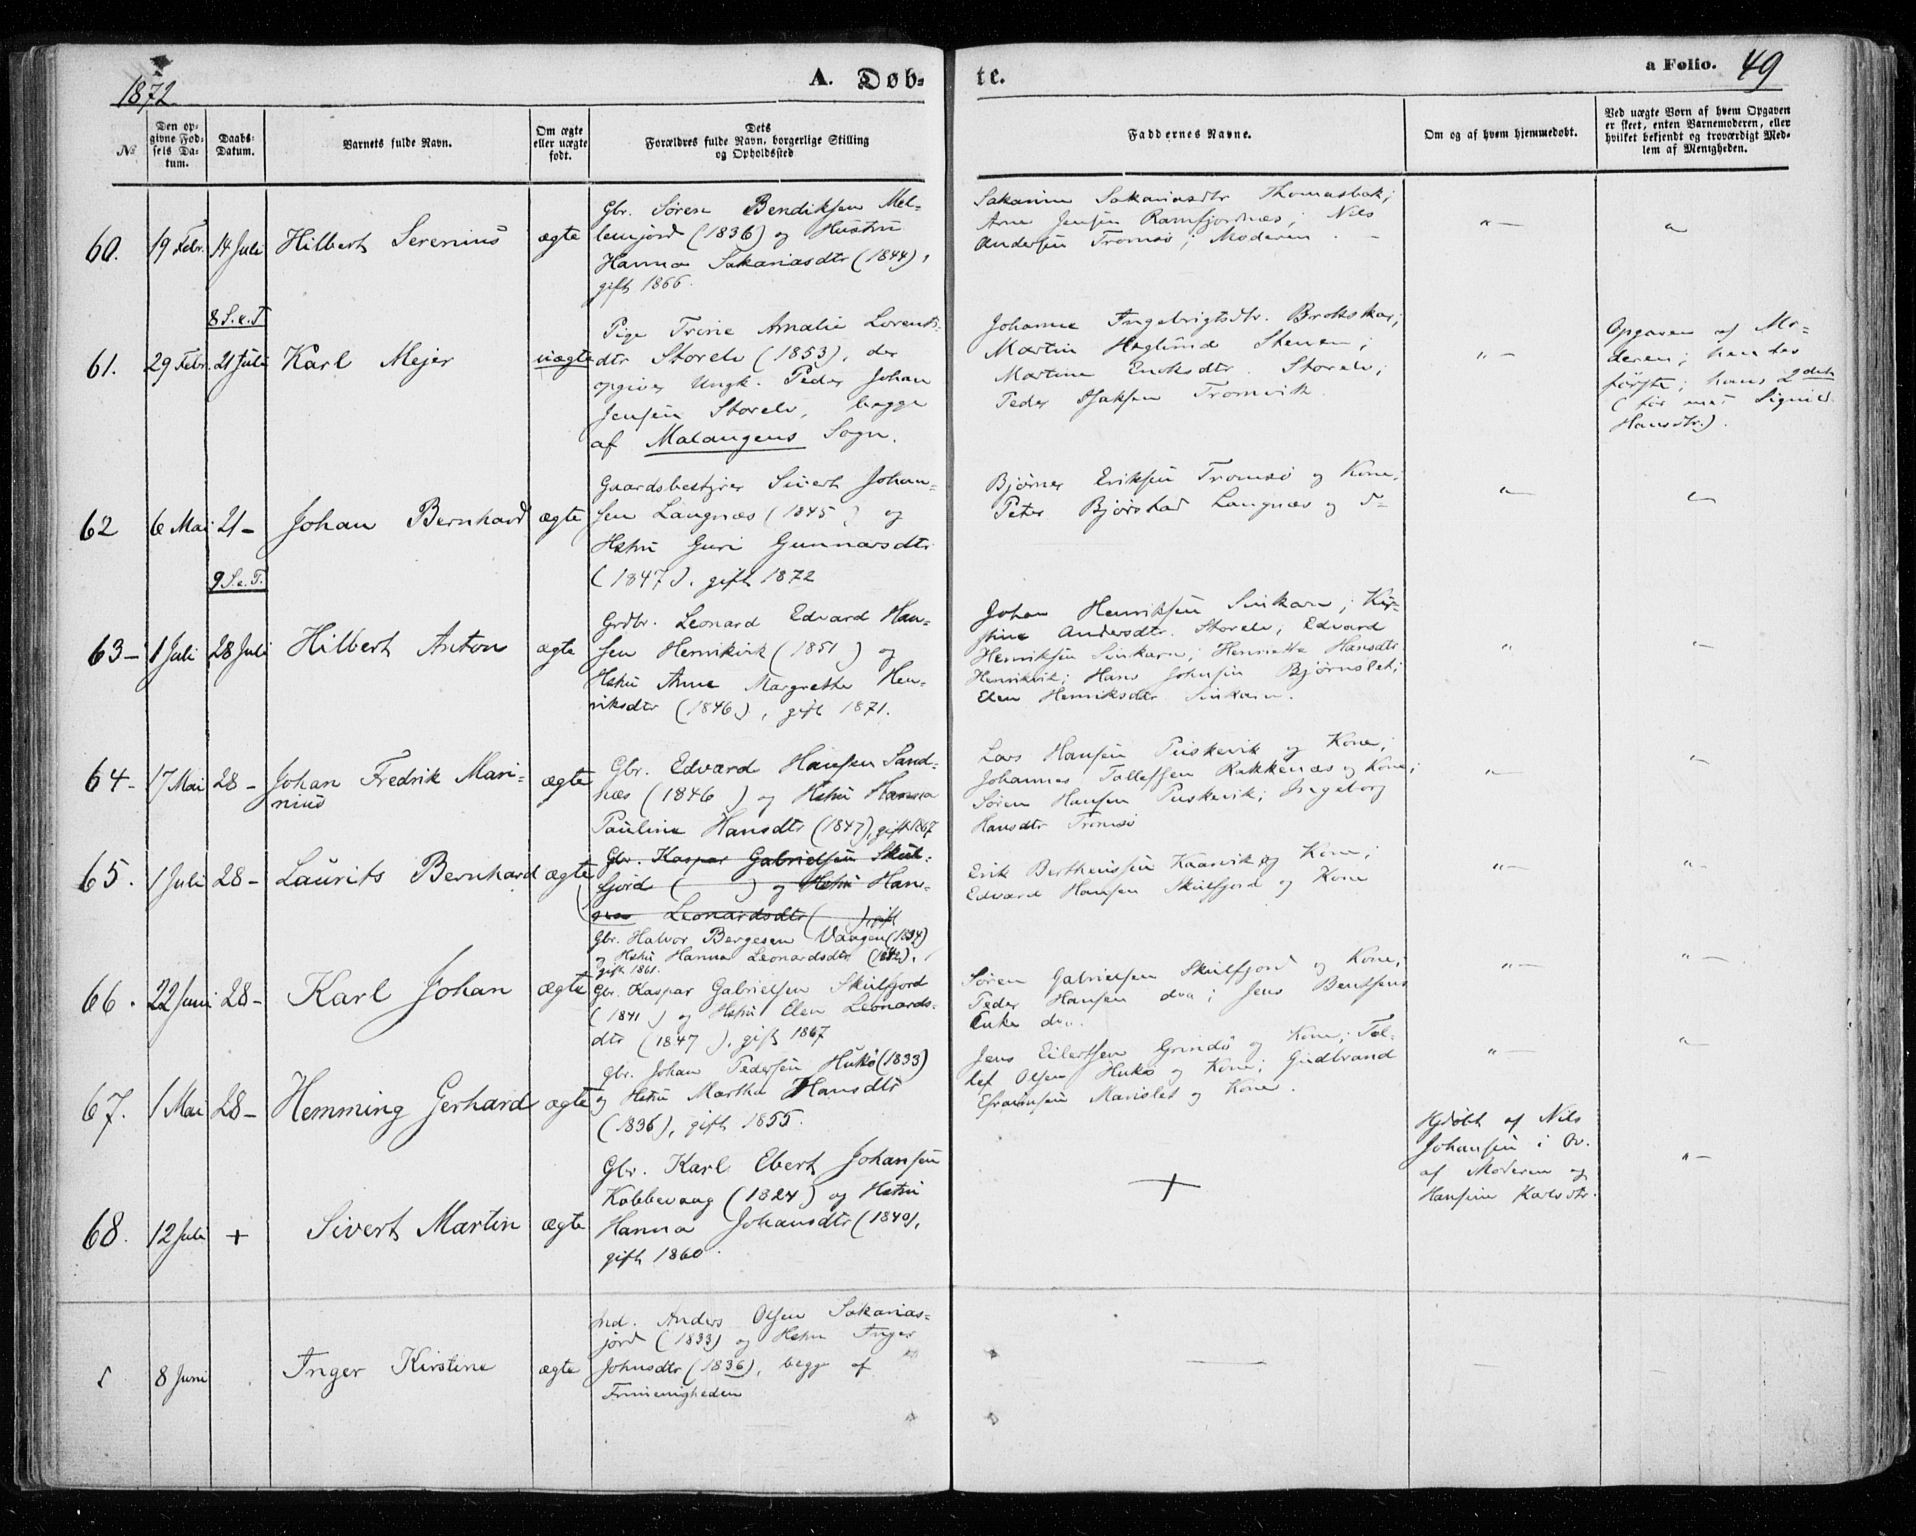 1872
A. Døb-
te.
a Folio. 49
№
Den op-
givne Fød-
sels Da-
tum.
Daabs-
Datum.
Barnets fulde Navn.
Om ægte
eller uægte
født.
Dets
Forældres fulde Navn, borgerlige Stilling
og Opholdssted
Faddernes Navne.
Om og af hvem hjemmedøbt.
Ved uægte Børn af hvem Opgaven
er skeet, enten Barnemoderen, eller
hvilket bekjendt og troværdigt Med-
lem af Menigheden.
60. 19 Febr. 14 Juli Hilbert Serenius ægte
Gbr. Søren Bendiksen Mel-
lemjord (1836) og Hustru
Hanna Sakariasdtr (1844),
gift 1866.
Sakarine Sakariasdtr Thomasbak;
Arne Jensen Ramfjordnæs; Nils
Andersen Tromsø; Moderen. –
"–
"
8 S.e.T
61. 29 Febr. 21 Juli Karl Mejer uægte
Pige Trine Amalie Lorents-
dtr Storelv (1853), der
opgiver Ungk. Peder Johan
Jensen Storelv, begge
af Malangens Sogn.
Johanne Ingebrigtsdtr. Brokskar;
Martin Høglund Stenen;
Martine Enoksdtr. Storelv;
Peder Isaksen Tromvik.
"–
Opgaven af Mo-
deren; hendes
første; hans 2det
(før med Signild
Hansdtr).
62 6 Mai 21– Johan Bernhard ægte
Gaardsbestyrer Sivert Johan-
sen Langnæs (1845) og
Hstru Guri Gunnarsdtr
(1847), gift 1872
Bjørner Eriksen Tromsø og Kone;
Peter Bjørstad Langnæs og d–
"–
"–
9 S.e.T.
63– 1 Juli 28 Juli Hilbert Anton ægte
Grdbr. Leonard Edvard Han-
sen Henrikvik (1851) og
Hstru Anne Margrethe Hen-
riksdtr (1846), gift 1871.
Johan Henriksen Sinkarn; Kir-
stine Andersdtr. Storelv; Edvard
Henriksen Sinkarn; Henriette Hansdtr
Henrikvik; Hans Johnsen Bjørnslet;
Elen Henriksdtr Sinkarn.
"
"–
64– 17 Mai 28– Johan Fredrik Mari-
nius
ægte
Gbr. Edvard Hansen Sand-
næs (1846) og Hstru Hanna
Pauline Hansdtr (1847), gift 1867
Lars Hansen Piskevik og Kone;
Johannes Tollefsen Rakkenæs og Kone;
Søren Hansen Piskevik; Ingeborg
Hansdtr Tromsø
"–
"–
65. 1 Juli 28– Laurits Bernhard ægte
Gbr. Kaspar Gabrielsen Skul-
fjord ( ) og Hstru Han-
Leonardsdtr ( ) gift
Gbr. Halvor Bergesen Vaagen (1834)
og Hstru Hanna Leonardsdtr (1842),
gift 1861.
Erik Berthenssen Kaarvik og Kone;
Edvard Hansen Skulfjord og Kone
"–
"–
66. 22 Juni 28– Karl Johan ægte
Gbr. Kaspar Gabrielsen Skulfjord
(1841) og Hstru Elen Leonards-
dtr (1847), gift 1867
Søren Gabrielsen Skulfjord og Kone;
Peder Hansen do; Jens Bentsens
Enke do.
"–
"–
67. 1 Mai 28– Hemming Gerhard ægte
Gbr. Johan Pedersen Hukø (1833)
og Hstru Martha Hansdtr
(1836), gift 1855.
Jens Eilertsen Grindø og Kone; Tol-
lef Olsen Hukø og Kone; Gudbrand
Efraimsen Marislet og Kone.
"–
"–
68. 12 Juli + Sivert Martin ægte
Gbr. Karl Ebert Johansen
Kobbevaag (1824) og Hstru
Hanna Johansdtr (1840),
gift 1860.
+
Hjdøbt af Nils
Johansen i Ov.
af Moderen og
Hansine Karlsdtr.
"–
8 Juni Inger Kirstine ægte
Ind. Anders Olsen Sakarias-
jord (1833) og Hstru Inger
Johnsdtr (1836), begge af
Frimenigheden